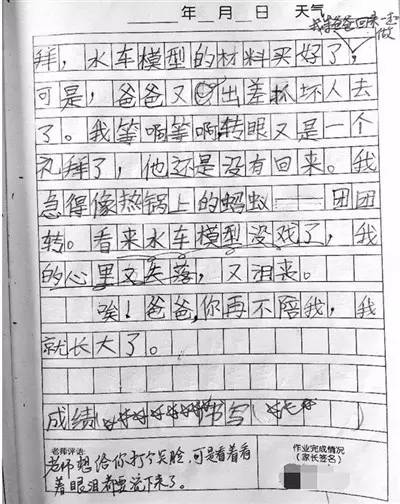 年 月 日 天气
我等爸爸回来一起
做
拜，水车模型的材料买好了，
可是，爸爸又出差抓坏人去
了。我等啊等啊转眼又是一个
礼拜了，他还是没有回来。我
急得像热锅上的蚂蚁——团团
转。看来水车模型没戏了，我
的心里又失落，又沮丧。
唉！爸爸，你再不陪我，我
就长大了。
成绩 书写
老师评语：
老师想给你打个笑脸，可是看着看
着眼泪都要流下来了。
作业完成情况
（家长签名）